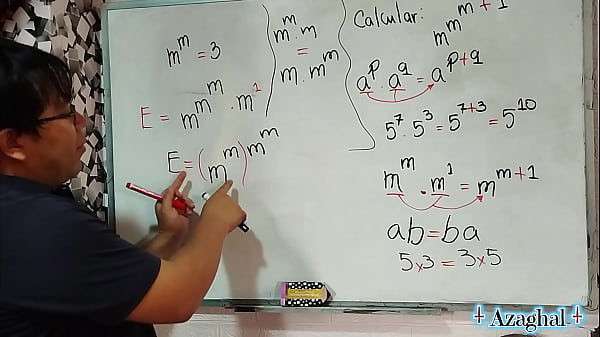 m^m = 3
E = m^{m^m · m^1}
E = (m^m)^{m^m}
m^m · m
=
m · m^m
Calcular:
m^{m^{m+1}}
a^p · a^q = a^{p+q}
5^7 · 5^3 = 5^{7+3} = 5^{10}
m^m · m^1 = m^{m+1}
ab = ba
5x3 = 3x5
Azaghal